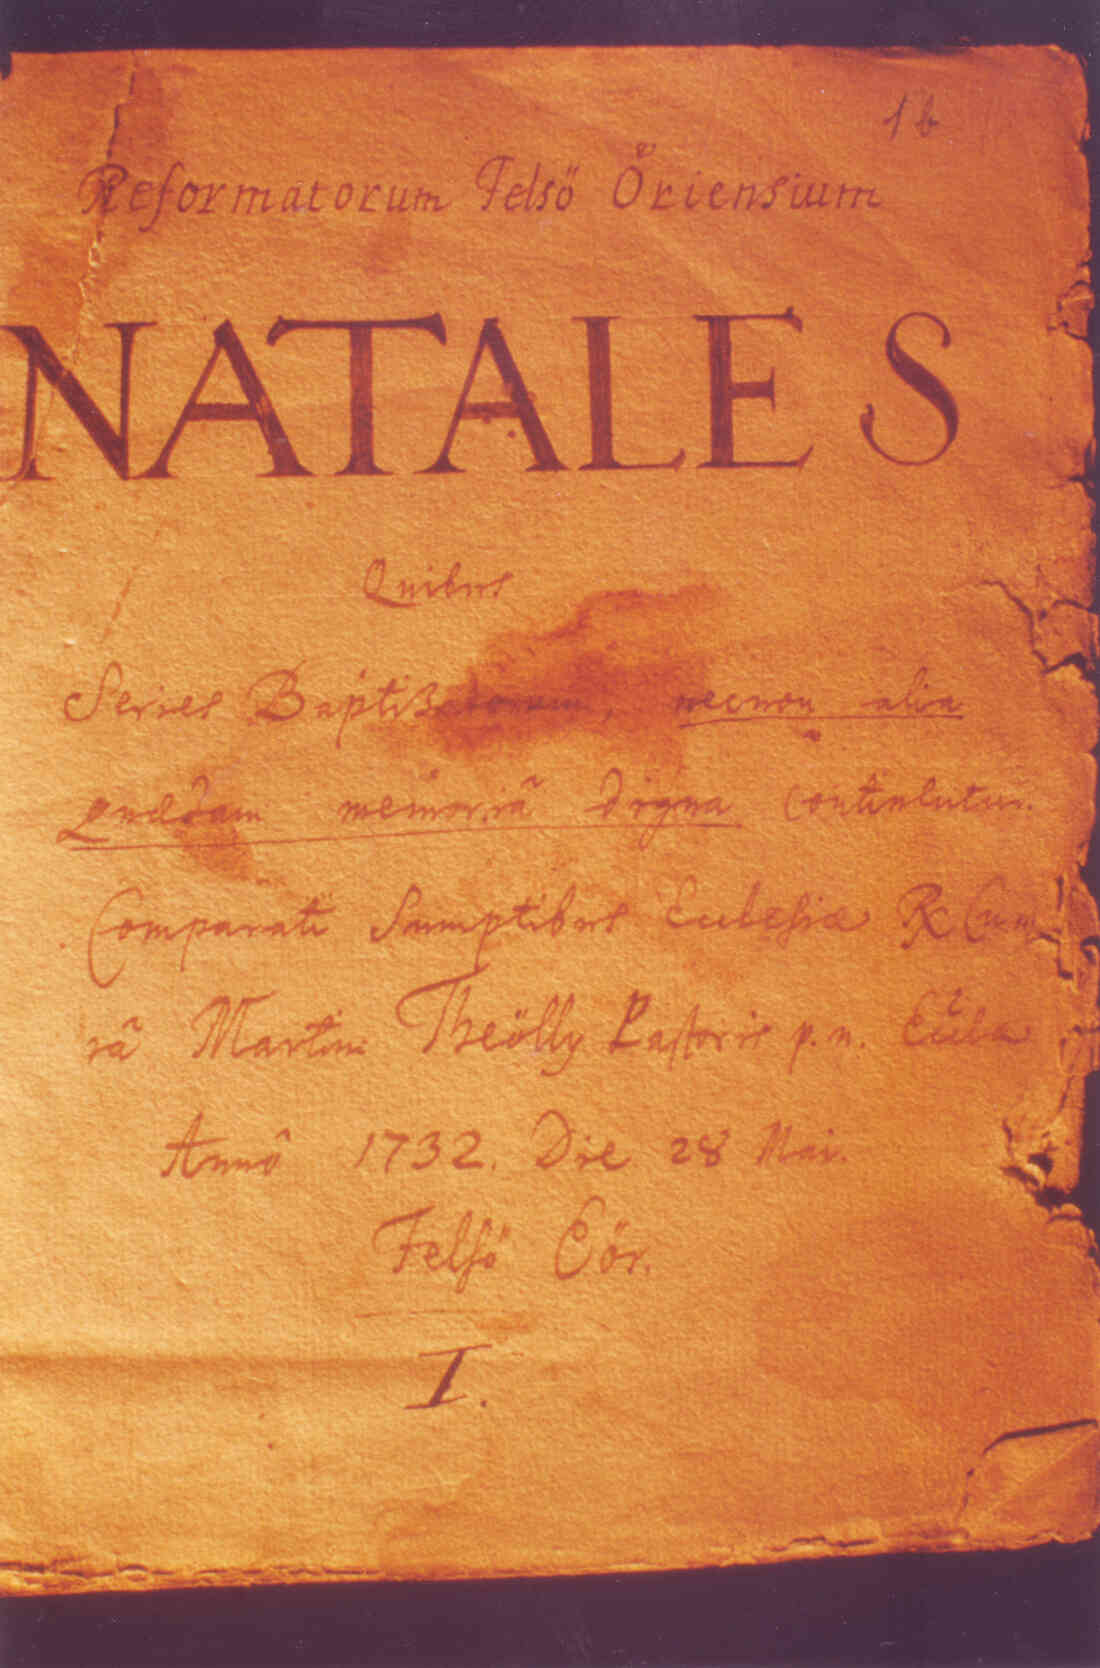 1b
Reformatorum Felsö Öriensium
NATALES
Quibus
Series Baptizatorum, necnon alia
quædam memoriâ digna continentur.
Comparati Sumptibus Ecclesiæ R
râ Martini Theölly Pastoris p. n.
Annô 1732. Die 28 Mai.
Felsö Eör.
I.